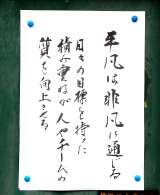 平凡は非凡に通じる
日々の目標を持つに
積み重ねが人やチームの
質を向上させる